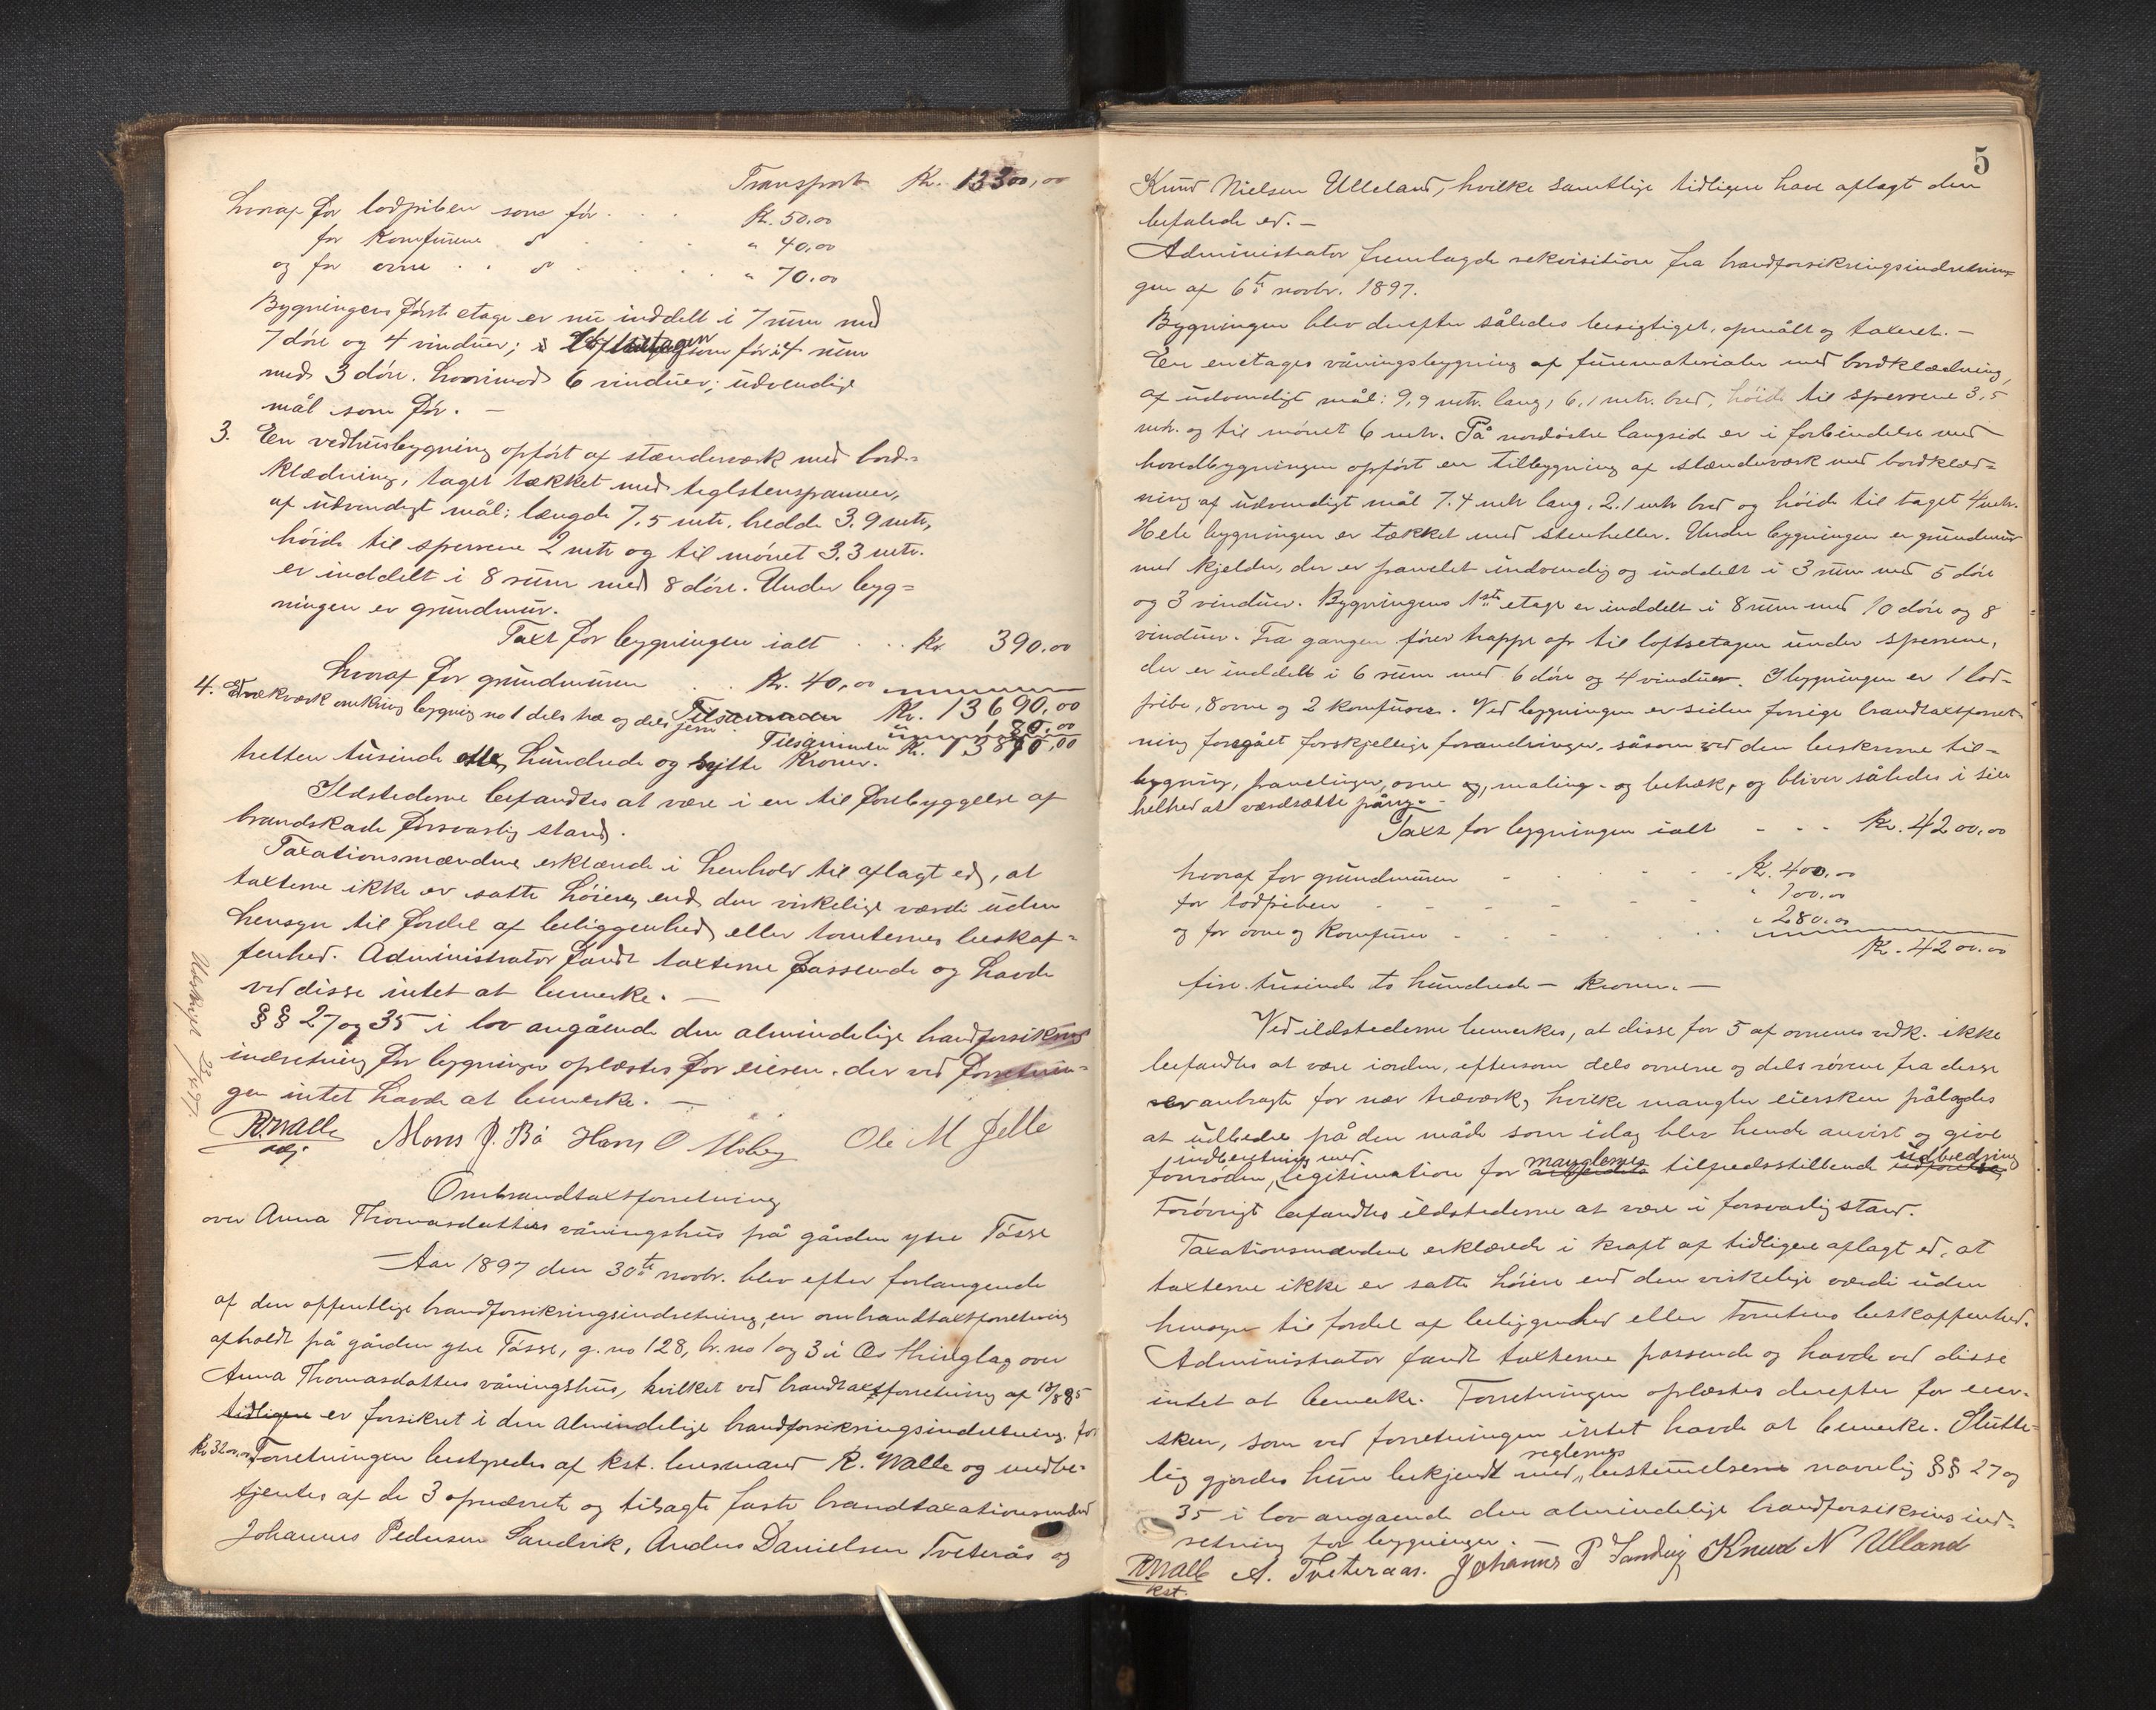 Transport Kr. 13300,00
hvoraf for lodpiben som før . . . Kr. 50.00
for komfurene d° . . . " 40,00
og for ovne . . d° . . . " 70.00
Bygningens første etage er nu inddelt i 7 rum med
7 døre og 4 vinduer; loftsetagen som før i 4 rum
med 3 døre. hvorimod 6 vinduer; udvendige
mål som før. —
3. En vedhusbygning opført af stænderværk med bord-
klædning, taget tækket med teglstenspanner,
af udvendigt mål: længde 7,5 mtr, bredde 3.9 mtr,
høide til sperrene 2 mtr og til mønet 3.3 mtr.
er inddelt i 8 rum med 8 døre. Under byg=
ningen er grundmur.
Taxt for bygningen ialt . . . Kr. 390.00
hvoraf for grundmuren . . Kr. 40,00
4. Et rækværk omkring bygning no 1 dels træ og dels jern
Tilsammen Kr. 13690,00
" 180,00
Tilsammen Kr. 13870,00
tretten tusinde otte hundrede og sytti kroner.
Ildstederne befandtes at være i en til forebyggelse af
brandskade forsvarlig stand.
Taxationsmændene erklærede i henhold til aflagt ed, at
taxterne ikke er satte høiere end den virkelige værdi uden
hensyn til fordel af beliggenhed eller tomternes beskaf=
fenhed. Administrator fandt taxterne passende og havde
ved disse intet at bemerke. —
§§ 27 og 35 i lov angående den almindelige brandforsikrings
indretning for bygninger oplæstes for eieren, der ved forretnin=
gen intet havde at bemerke. —
Udskrevet 23/12 97
R. Walle Mons J. Bø Hans O Moberg Ole M Jelle
Ombrandtaxtforretning
over Anna Thomasdatters våningshus på gården ytre Tøsse
Aar 1897 den 30te novbr. blev efter forlangende
af den offentlige brandforsikringsindretning, en ombrandtaxtforretning
afholdt på gården ytre Tøsse, g. no 128, br. no 1 og 3 i Os thinglag over
Anna Thomasdatters våningshus, hvilket ved brandtaxtforretning af 10/8 85
tidligere er forsikret i den almindelige brandforsikringsindretning for
Kr 3200,00. Forretningen bestyredes af kst. lensmand R. Walle og medbe-
tjentes af de 3 opnævnte og tilsagte faste brandtaxationsmænd
Johannes Pedersen Sandvik, Anders Danielsen Tveterås og
5
Knud Nielsen Ulleland, hvilke samtlige tidligere have aflagt den
befalede ed. —
Administrator fremlagde rekvisition fra brandforsikringsindretnin-
gen af 6te novbr. 1897.
Bygningen blev derefter således besigtiget, opmålt og taxeret. —
En enetages våningsbygning af furumaterialer med bordklædning,
af udvendigt mål: 9,9 mtr. lang, 6,1 mtr. bred, høide til sperrene 3,5
mtr. og til mønet 6 mtr. På nordøstre langside er i forbindelse med
hovedbygningen opført en tilbygning af stænderværk med bordklæd=
ning af udvendigt mål 7.4 mtr lang, 2.1 mtr bred og høide til taget 4 mtr.
Hele bygningen er tækket med stenheller. Under bygningen er grundmur
med kjelder, der er panelet indvendig og inddelt i 3 rum med 5 døre
og 3 vinduer. Bygningens 1ste etage er inddelt i 8 rum med 10 døre og 8
vinduer. Fra gangen fører trappe op til loftsetagen under sperrene,
der er inddelt i 6 rum med 6 døre og 4 vinduer. I bygningen er 1 lod-
pibe, 8 ovne og 2 komfurer. Ved bygningen er siden forrige brandtaxtforret-
ning foregået forskjellige forandringer, såsom ved den beskrevne til-
bygning, panelinger, ovne og, maling- og betræk, og bliver således i sin
helhed at værdsætte påny. -
Taxt for bygningen ialt - - - Kr. 4200,00
hvoraf for grundmuren - - - Kr. 400,00
for lodpiben - - - " 100.00
og for ovne og komfurer - - - " 280.00
Kr. 4200.00
fire tusinde to hundrede — kroner. —
Ved ildstederne bemerkes, at disse for 5 af ovnenes vedk. ikke
befandtes at være iorden, eftersom dels ovnene og dels rørene fra disse
er anbragte for nær træværk, hvilke mangler eiersken pålagdes
at udbedre på den måde som idag blev hende anvist og give
indberetning med
fornøden, legitimation for manglernes tilfredsstillende udbedring
Forøvrigt befandtes ildstederne at være i forsvarlig stand.
Taxationsmændene erklærede i kraft af tidligere aflagt ed, at
taxterne ikke er satte høiere end den virkelige værdi uden
hensyn til fordel af beliggenhed eller tomtens beskaffenhed.
Administrator fandt taxterne passende og havde ved disse
intet at bemerke. Forretningen oplæstes derefter for eier-
sken, som ved forretningen intet havde at bemerke. Slutte-
lig gjordes hun bekjendt med reglernes bestemmelserne navnlig §§ 27 og
35 i lov angaaende den almindelige brandforsikrings ind-
retning for bygninger. —
R Walle A. Tveteraas. Johannes P Sandvig Knud N Ulland
kst.